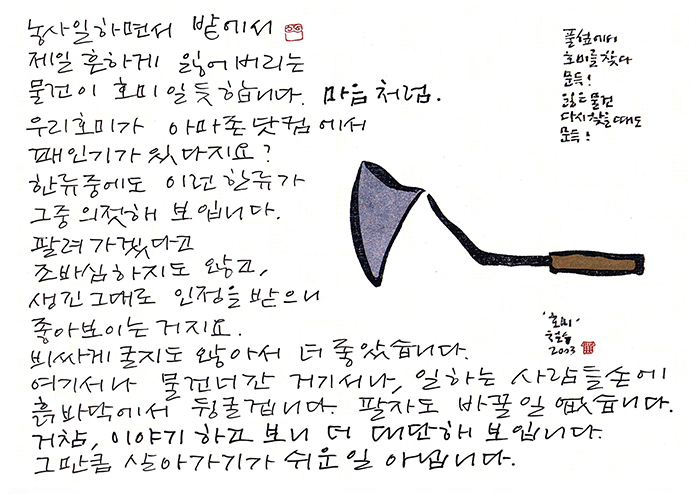 농사일하면서 밭에서
제일 흔하게 잃어버리는
물건이 호미일듯합니다. 마음처럼.
우리호미가 아마존닷컴에서
꽤인기가 있다지요?
한류중에도 이런한류가
그중 의젓해 보입니다.
팔려가겠다고
조바심하지도 않고,
생긴그대로 인정을 받으니
좋아보이는 거지요.
비싸게 굴지도 않아서 더 좋았습니다.
여기서나 물건너간 거기서나, 일하는 사람들손에
흙바닥에서 뒹굴겝니다. 팔자도 바꿀일 없습니다.
거참, 이야기 하고 보니 더 대단해 보입니다.
그만큼 살아가기가 쉬운일 아닙니다.
풀섶에서
호미를 찾다
문득!
잃은물건
다시찾을때도
문득!
'호미'
2003